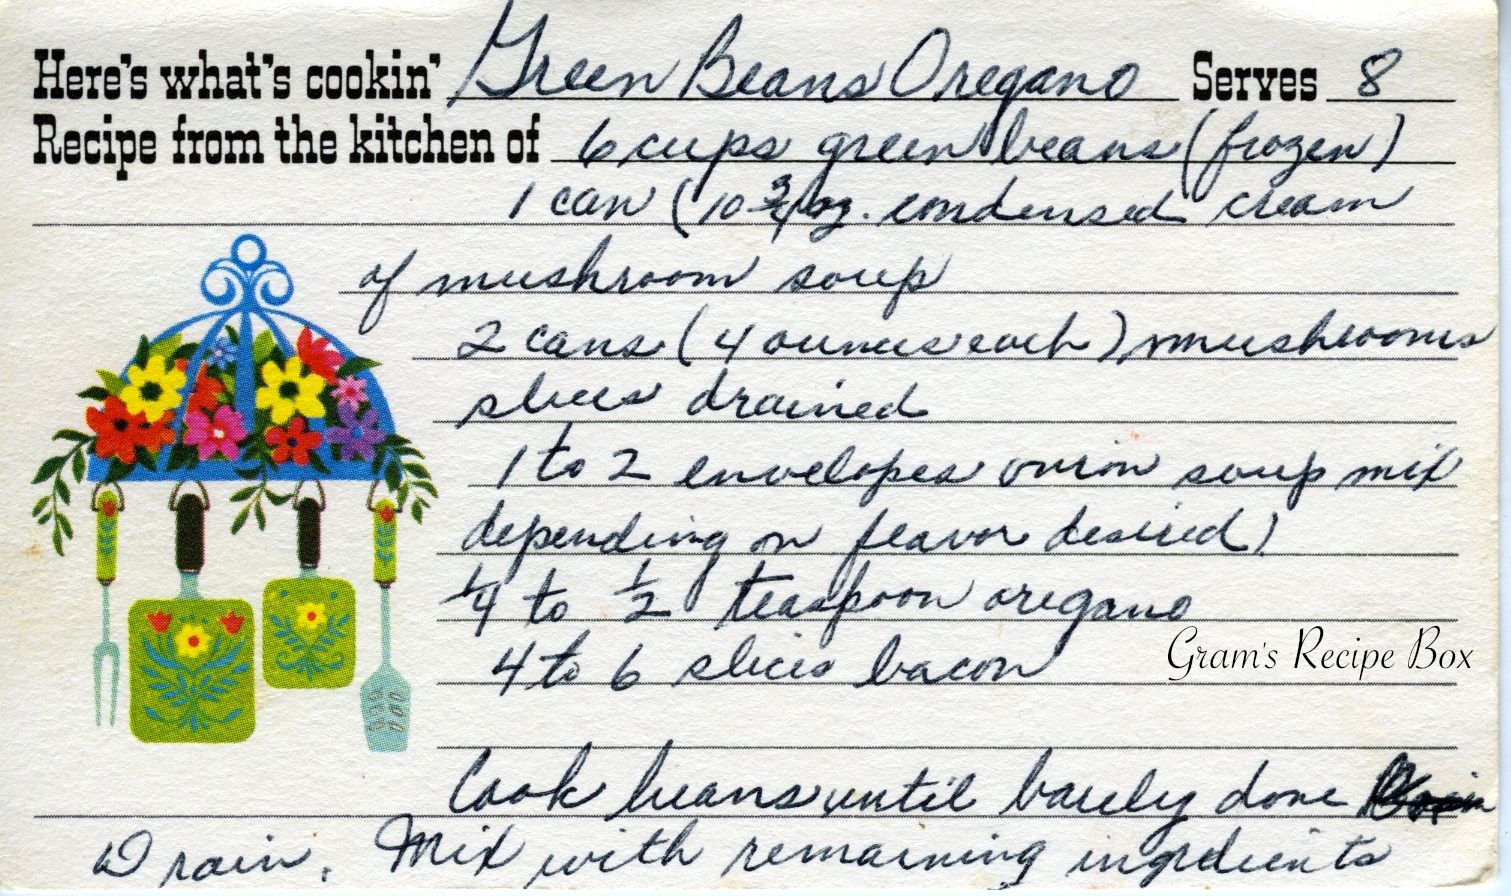 Here's what's cookin' Green Beans Oregano Serves 8
Recipe from the kitchen of 6 cups green beans (frozen)
1 can (10 3/4 oz. condensed cream
of mushroom soup
2 cans (4 ounces each) mushrooms
slices drained
1 to 2 envelopes onion soup mix
depending on flavor desired)
1/4 to 1/2 teaspoon oregano
4 to 6 slices bacon
Gram's Recipe Box
Cook beans until barely done
Drain. Mix with remaining ingrdients